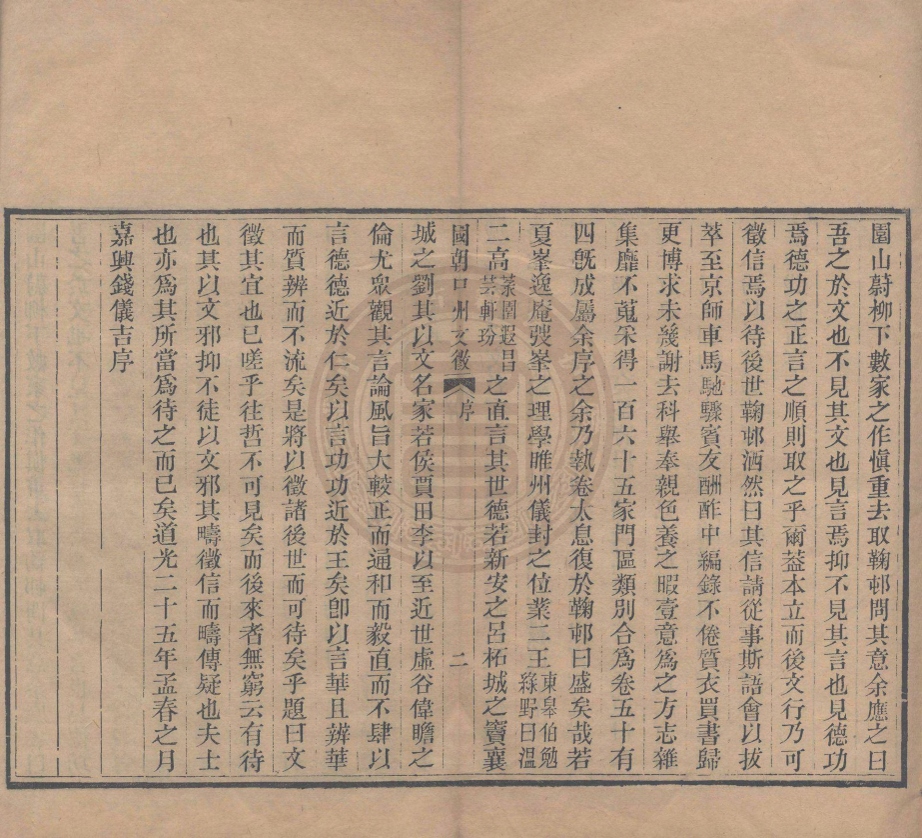 園山蔚柳下數家之作愼重去取鞠邨問其意余應之曰
吾之於文也不見其文也見言焉抑不見其言也見德功
焉德功之正言之順則取之乎爾葢本立而後文行乃可
徵信焉以待後世鞠邨洒然曰其信請從事斯語會以拔
萃至京師車馬馳驟賓友酬酢中編錄不倦質衣買書歸
更博求未幾謝去科舉奉親色養之暇壹意爲之方志雜
集靡不蒐采得一百六十五家門區類別合爲卷五十有
四旣成屬余序之余乃執卷太息復於鞠邨曰盛矣哉若
夏峯逸庵弢峯之理學睢州儀封之位業二王東皋伯勉綠野曰溫
二高菉園遐昌芸軒玢之直言其世德若新安之呂柘城之竇襄
國朝中州文徵 序 二
城之劉其以文名家若侯賈田李以至近世虛谷偉瞻之
倫尤衆觀其言論風旨大較正而通和而毅直而不肆以
言德德近於仁矣以言功功近於王矣卽以言華且辨華
而質辨而不流矣是將以徵諸後世而可待矣乎題曰文
徵其宜也已嗟乎往哲不可見矣而後來者無窮云有待
也其以文邪抑不徒以文邪其疇徵信而疇傳疑也夫士
也亦爲其所當爲待之而已矣道光二十五年孟春之月
嘉興錢儀吉序